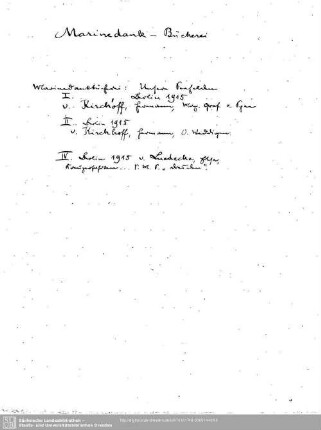 Marinedank – Bücherei
Marinedankbücherei: Unsere Seehelden
I. Berlin 1915
v. Kirchhoff, Hermann, Max. Graf v. Spee
II. Berlin 1915
v. Kirchhoff, Hermann, O. Weddigen
IV. Berlin 1915 v. Luedecke,
Sächsische Landesbibliothek
Staats- und Universitätsbibliothek Dresden